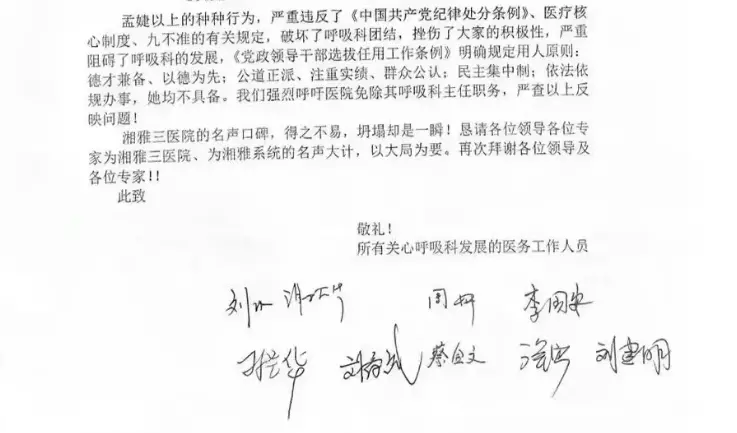 孟婕以上的种种行为，严重违反了《中国共产党纪律处分条例》、医疗核
心制度、九不准的有关规定，破坏了呼吸科团结，挫伤了大家的积极性，严重
阻碍了呼吸科的发展，《党政领导干部选拔任用工作条例》明确规定用人原则：
德才兼备、以德为先；公道正派、注重实绩、群众公认；民主集中制；依法依
规办事，她均不具备。我们强烈呼吁医院免除其呼吸科主任职务，严查以上反
映问题！
湘雅三医院的名声口碑，得之不易，坍塌却是一瞬！恳请各位领导各位专
家为湘雅三医院、为湘雅系统的名声大计，以大局为要。再次拜谢各位领导及
各位专家！！
此致
敬礼！
所有关心呼吸科发展的医务工作人员
刘 周 李国
华 刘 蔡 文 刘建明